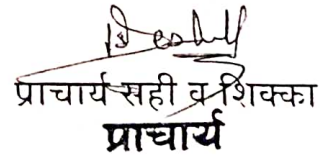 प्राचार्य सही व शिक्का
प्राचार्य